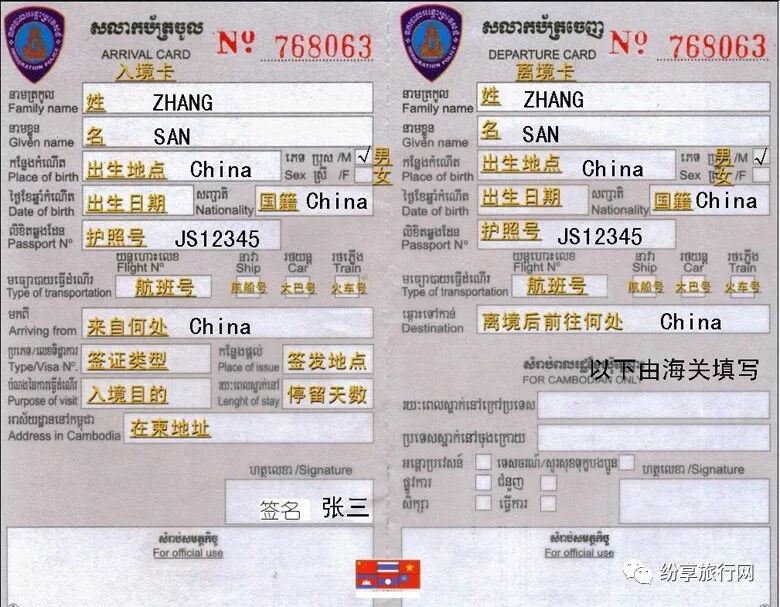 សលាកប័ត្រចូល
ARRIVAL CARD
入境卡
Nº 768063
នាមត្រកូល
Family name
姓 ZHANG
នាមខ្លួន
Given name
名 SAN
កន្លែងកំណើត
Place of birth
出生地点 China
ភេទ ប្រុស /M √ 男
Sex ស្រី /F 女
ថ្ងៃខែឆ្នាំកំណើត
Date of birth
出生日期
សញ្ជាតិ
Nationality
国籍 China
លិខិតឆ្លងដែន
Passport Nº
护照号 JS12345
មធ្យោបាយធ្វើដំណើរ
Type of transportation
យន្តហោះលេខ
Flight Nº
航班号
នាវា
Ship
航船号
រថយន្ត
Car
大巴号
រថភ្លើង
Train
火车号
មកពី
Arriving from
来自何处 China
ប្រភេទ/លេខទិដ្ឋាការ
Type/Visa Nº.
签证类型
កន្លែងផ្តល់
Place of issue
签发地点
បំណងនៃការធ្វើដំណើរ
Purpose of visit
入境目的
រយៈពេលស្នាក់នៅ
Lenght of stay
停留天数
អាស័យដ្ឋាននៅកម្ពុជា
Address in Cambodia
在柬地址
ហត្ថលេខា /Signature
签名 张三
សំរាប់សមត្ថកិច្ច
For official use
សលាកប័ត្រចេញ
DEPARTURE CARD
离境卡
Nº 768063
នាមត្រកូល
Family name
姓 ZHANG
នាមខ្លួន
Given name
名 SAN
កន្លែងកំណើត
Place of birth
出生地点 China
ភេទ ប្រុស /M √ 男
Sex ស្រី /F 女
ថ្ងៃខែឆ្នាំកំណើត
Date of birth
出生日期
សញ្ជាតិ
Nationality
国籍 China
លិខិតឆ្លងដែន
Passport Nº
护照号 JS12345
មធ្យោបាយធ្វើដំណើរ
Type of transportation
យន្តហោះលេខ
Flight Nº
航班号
នាវា
Ship
航船号
រថយន្ត
Car
大巴号
រថភ្លើង
Train
火车号
ឆ្ពោះទៅកាន់
Destination
离境后前往何处 China
以下由海关填写
FOR CAMBODIAN ONLY
រយៈពេលស្នាក់នៅក្រៅប្រទេស
ប្រទេសស្នាក់នៅចុងក្រោយ
អន្តោប្រវេសន៍ ទេសចរណ៍/សួរសុខទុក្ខបងប្អូន
ផ្លូវការ ជំនួញ
សិក្សា ធ្វើការ
ហត្ថលេខា /Signature
សំរាប់សមត្ថកិច្ច
For official use
纷享旅行网